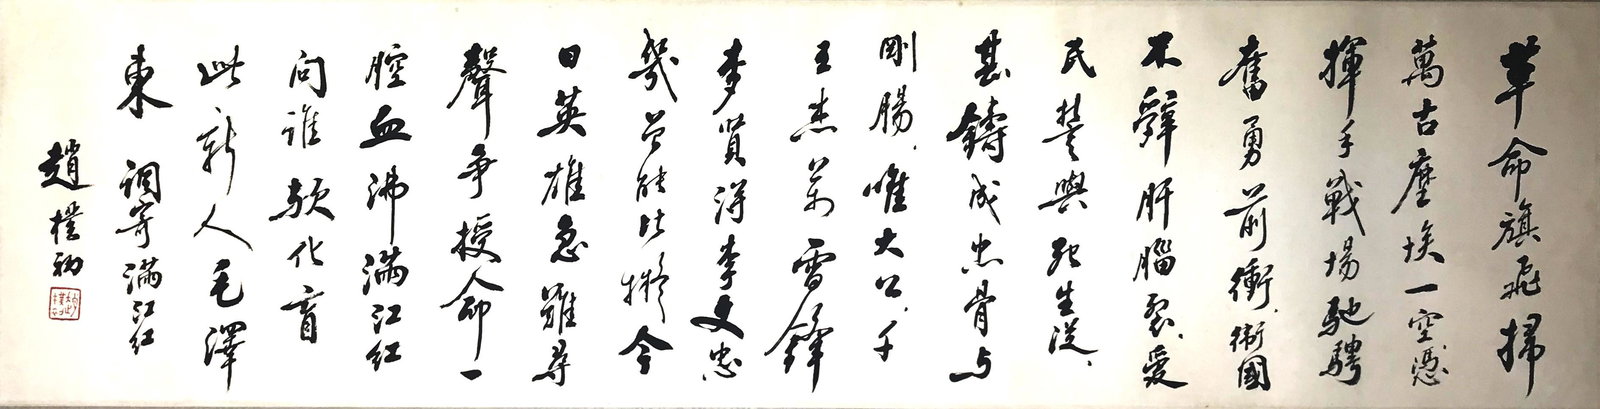 革命旗飛掃
萬古塵埃一空憑
揮手戰場馳騁
奮勇前衝衛國
不辭肝腦裂愛
民誓與死生從
甚鑄成忠骨与
剛腸唯大公千
王杰萬雷鋒
麥賢得李文忠
幾曾能比擬今
日英雄急難尋
聲爭授命一
腔血沸滿江紅
問誰歟化育
此新人毛澤
東 調寄滿江紅
趙樸初